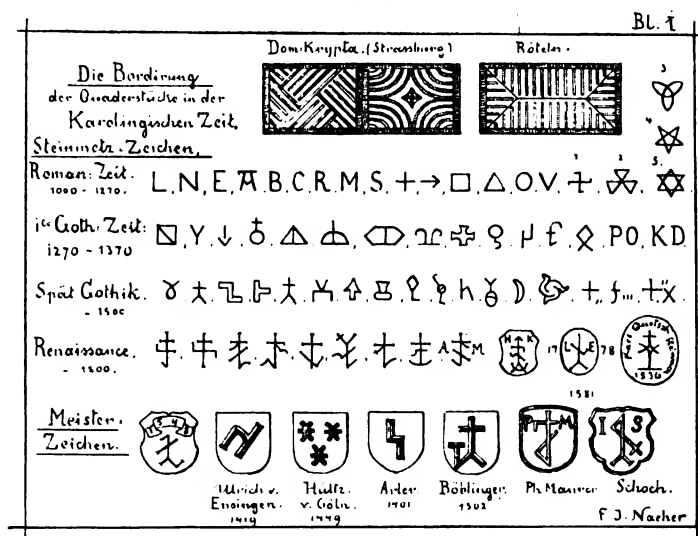 Bl. 1
Dom-Krypta. (Strassburg)
Röteln.
Die Bordirung
der Quaderstücke in der
Karolingischen Zeit.
3
4
Steinmetz-Zeichen.
Roman: Zeit.
1000 - 1270.
L. N. E. A. B. C. R. M. S. O. V. 1 2 5.
Goth. Zeit:
1270 - 1370
Y. PO. KD.
Spät Gothik.
- 1500
Renaissance.
- 1800.
A M
H K
17 L E 78
1836
1581
Meister-
Zeichen.
1548
Pr M
I S
T
Ulrich v.
Ensingen.
1419
Hültz.
v. Cöln.
1449
Arler
1401
Böblinger.
1502
Ph. Maurer
Schoch.
F J. Nacher